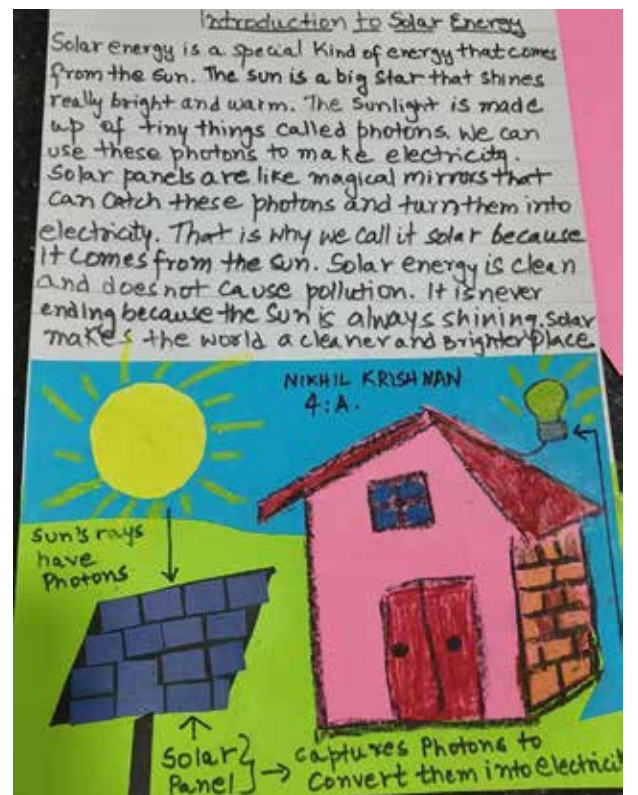 Introduction to Solar Energy
Solar energy is a special kind of energy that comes
from the sun. The sun is a big star that shines
really bright and warm. The sunlight is made
up of tiny things called photons. We can
use these photons to make electricity.
Solar panels are like magical mirrors that
can catch these photons and turn them into
electricity. That is why we call it solar because
it comes from the sun. Solar energy is clean
and does not cause pollution. It is never
ending because the sun is always shining. Solar
makes the world a cleaner and Brighter place
NIKHIL KRISHNAN
4:A.
Sun's rays
have
Photons
Solar
Panel
Captures Photons to
Convert them into electricit